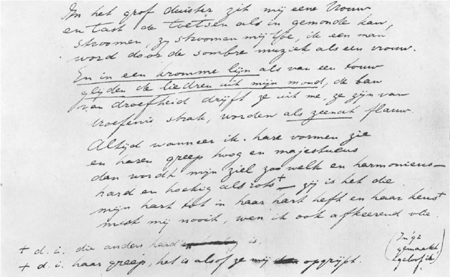 In het grof duister zit mij eene Vrouw
en tast de toetsen als in gemonde kan,
stroomen, zij stroomen mij toe, ik een man
word door de sombre muziek als een vrouw.
En in een kromme lijn als van een touw
glijden de liedren uit mijn mond, de ban
van droefheid drijft ze uit me, ze zijn van
droefenis strak, worden als zeenat flauw.
Altijd wanneer ik hare vormen zie
en haren greep hoog en majestueus
dan wordt mijn ziel zoo welk en harmonieus
hard en hoekig als rots † zij is het die
mijn hart tot in haar hart heft en haar keus
mist mij nooit, wen ik ook afkeerend vlie.
† d. i. die anders hard is.
+ d. i. haar greep, het is alsof ze mij opgrijpt.
(In '92
gemaakt
geloof ik)